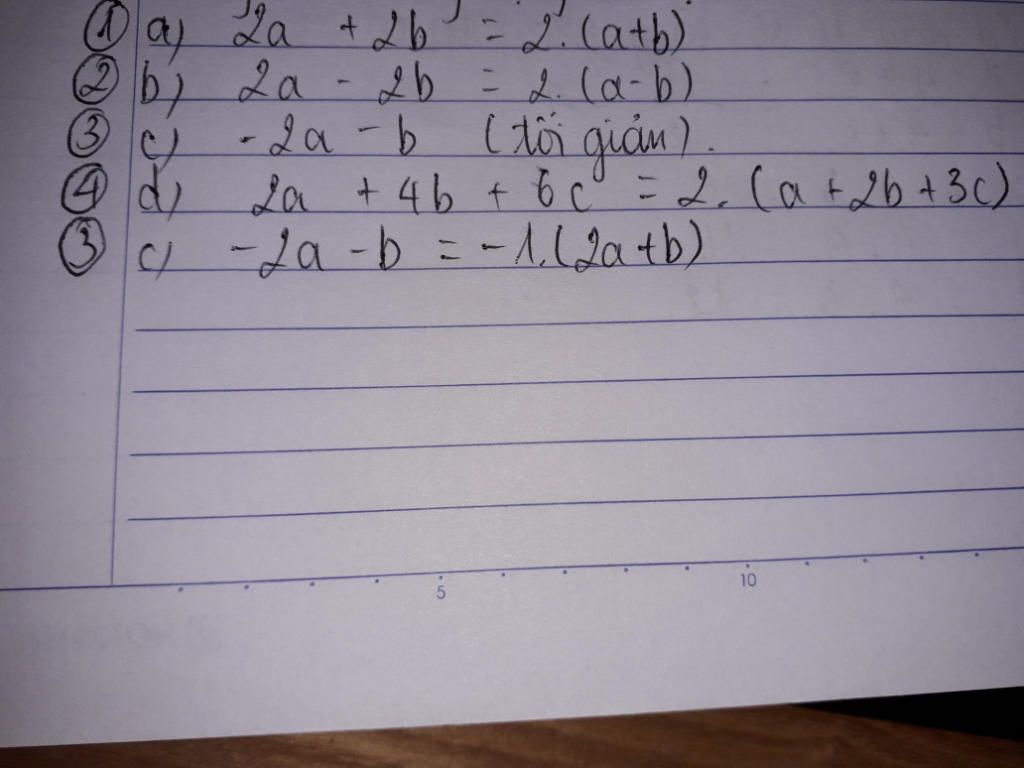 ① a) 2a + 2b = 2.(a+b)
② b) 2a - 2b = 2.(a-b)
③ c) -2a - b (tối giản).
④ d) 2a + 4b + 6c = 2.(a+2b+3c)
③ c) -2a - b = -1.(2a+b)
5 10